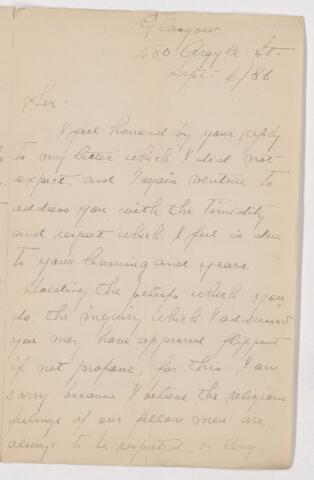 Glasgow
480 Argyle St.
Sept. 6/86
Sir:
I feel honored by your reply
to my letter which I did not
expect, and I again venture to
address you with the timidity
and respect which I feel is due
to your learning and years.
Holding the beliefs which you
do, the inquiry which I addressed
you may have appeared flippant
if not profane, for this I am
sorry because I believe the religious
feelings of our fellow men are
always to be respected, so long